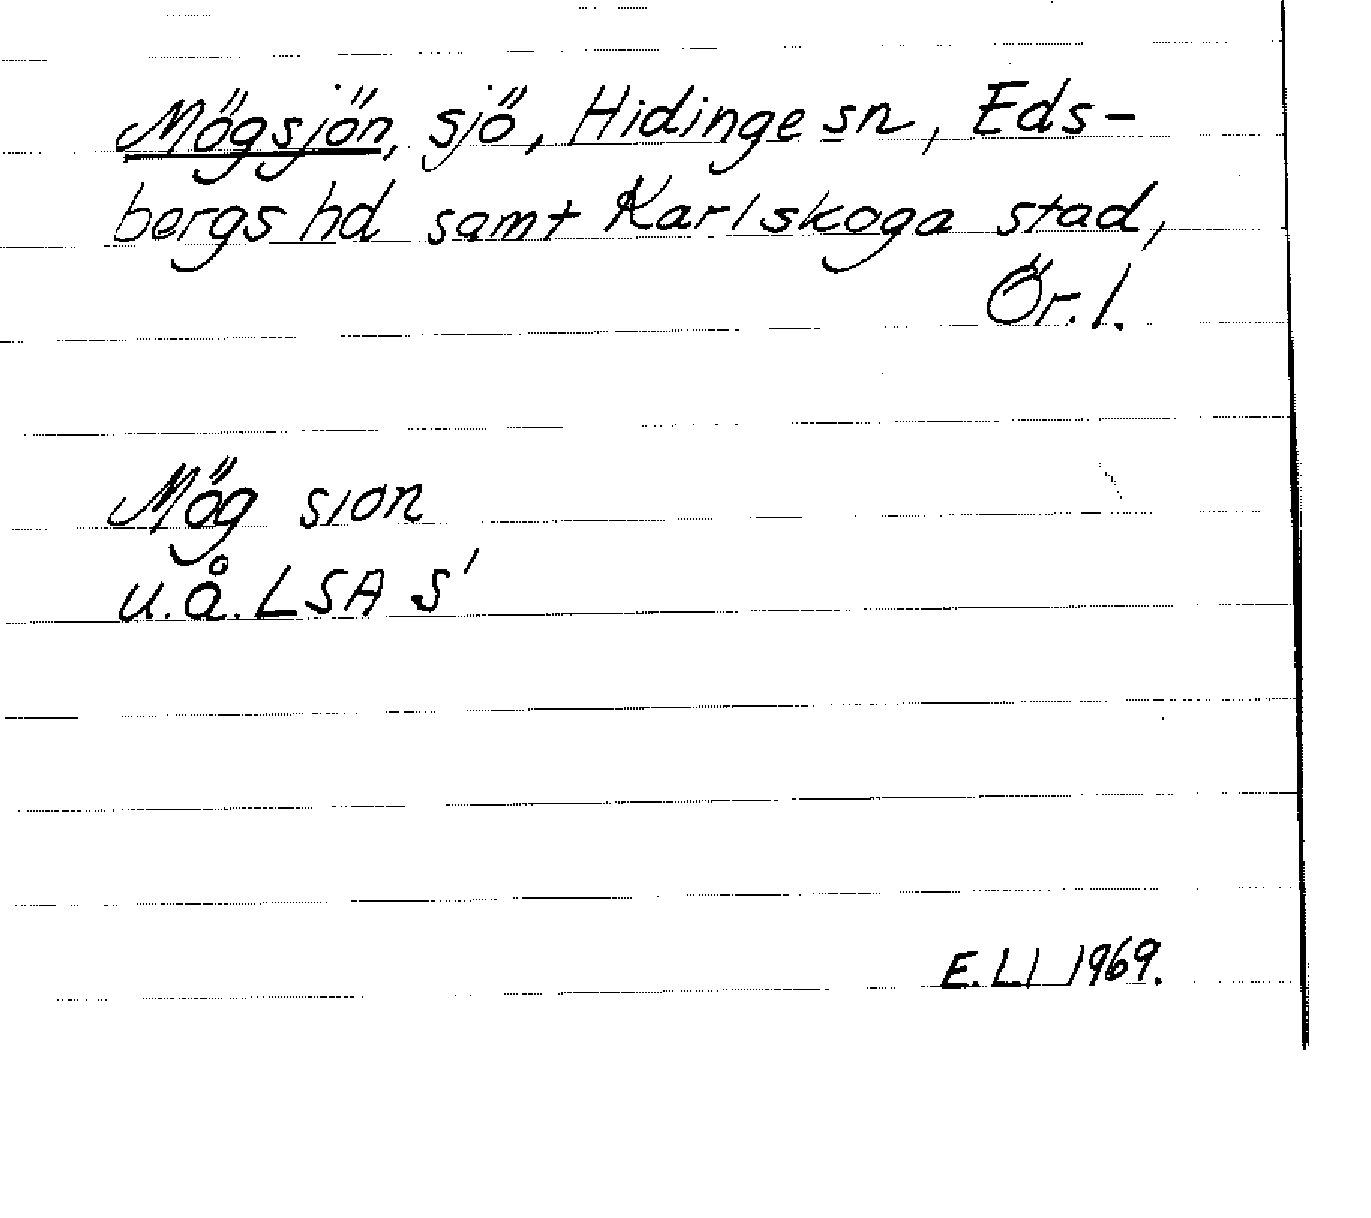 Mögsjön, sjö, Hidinge sn, Eds-
bergs hd samt Karlskoga stad,
Ör. l.
Mög sion
u.å. LSA S'
E. Ll 1969.